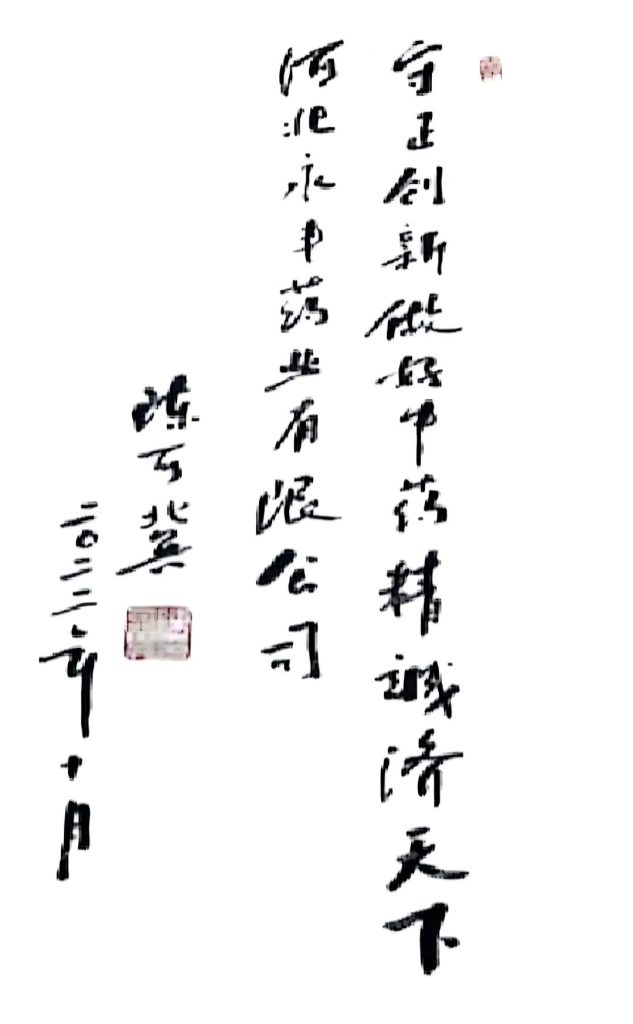 守正创新做好中药精诚济天下
河北永丰药业有限公司
陈可冀
二〇二二年十月